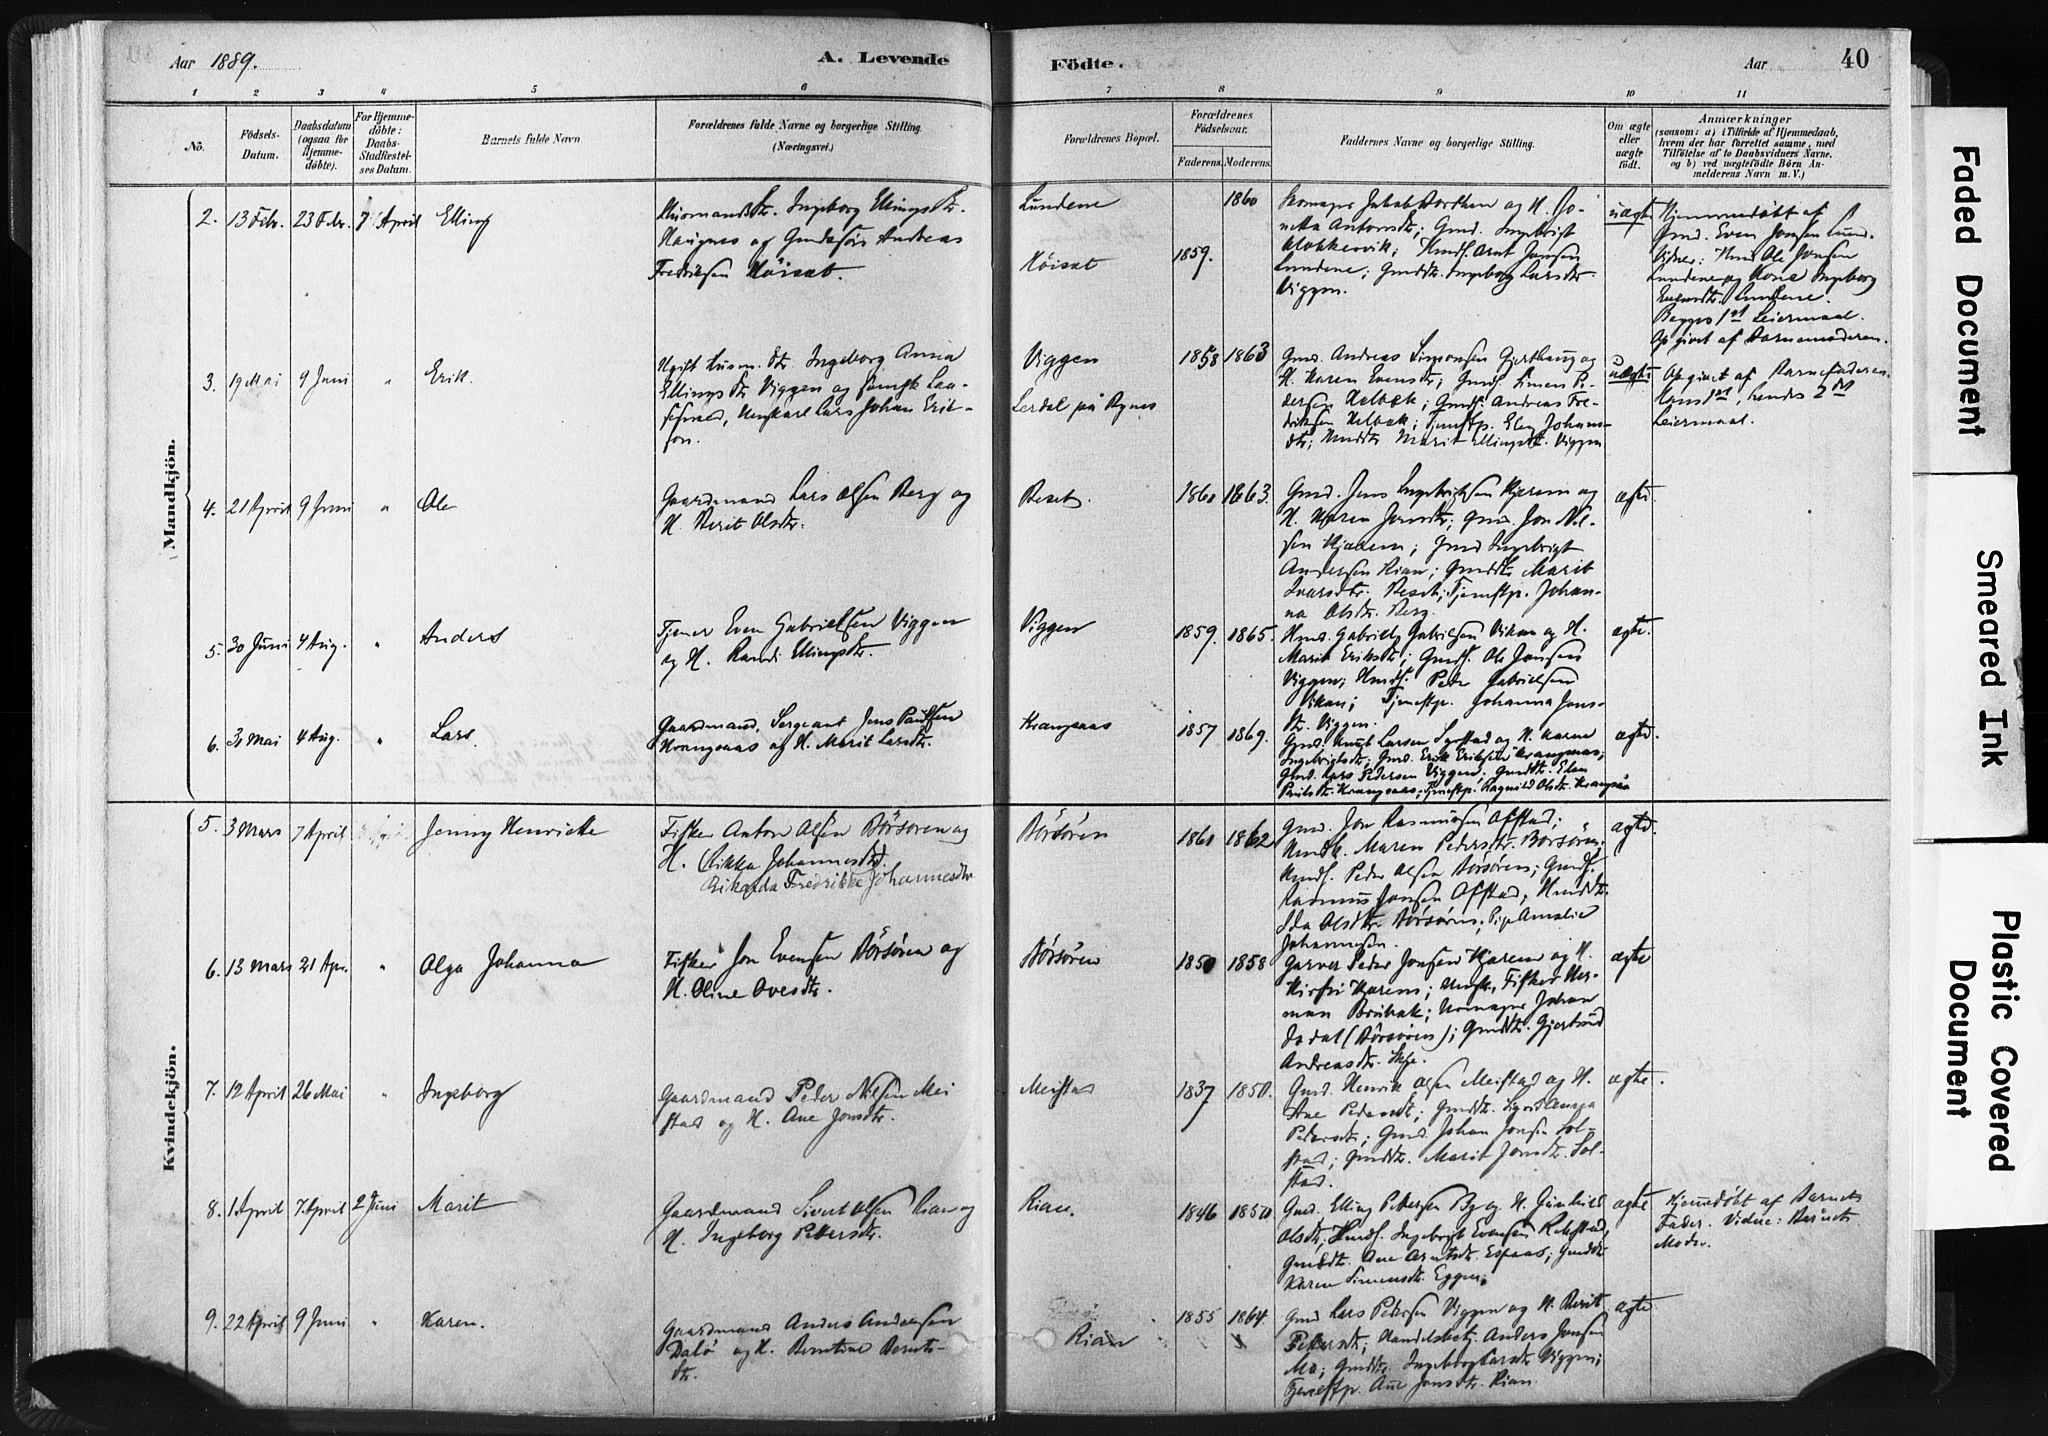 Aar 1889.
A. Levende
Födte.
Aar
40
1 2 3 4 5 6 7 8 9 10 11
No.
Födsels-
Datum.
Daabsdatum
(ogsaa for
Hjemme-
døbte).
For Hjemme-
døbte:
Daabs-
Stadfæstel-
ses Datum.
Barnets fulde Navn
Forældrenes fulde Navne og borgerlige Stilling.
(Næringsvei.)
Forældrenes Bopæl.
Forældrenes
Födselsaar.
Faderens. Moderens.
Faddernes Navne og borgerlige Stilling.
Om ægte
eller
uægte
födt.
Anmærkninger
(saasom: a) i Tilfælde af Hjemmedaab,
hvem der har forrettet samme, med
Tilföielse af to Daabsvidners Navne,
og b) ved uægtefödte Börn An-
melderens Navn m. V.)
Mandkjön.
2. 13 Febr. 23 Febr. 7 April Elling
Ingeborg Ellingsdtr.
og Andreas
Fredriksen Höiset.
Lundene
Höiset
1859. 1860
og H.
Antonsdtr; Gmd. Ingebrigt
Arnt Jonsen
Lundene; Gmddtr. Ingeborg Larsdtr.
Viggen.
uægte
Hjemmedöbt af
Gmd. Even Jonsen Lund.
Vidner: Ole Jonsen
Lundene og Kone Ingeborg
Lundene.
Begges 1st Leiermaal.
Opgivet af Barnemoderen.
3. 19 Mai 9 Juni " Erik.
Ugift Ingeborg Anna
Ellingsdtr Viggen og
Ungkarl Lars Johan Erik-
sen.
Viggen
Lerdal på Bynes
1858 1863
Gmd. Andreas Simonsen Gjersthaug og
H. Karen Evensdtr; Gmds. Simen Pe-
dersen Helbæk; Gmds. Andreas Fre-
driksen Helbæk; Tjenestp. Elen Johans-
dtr; Marit Ellingsdtr. Viggen
uægte
Opgivet af Barnefaderen.
Hans 1st, hendes 2det
Leiermaal.
4. 21 April 9 Juni " Ole
Gaardmand Lars Olsen Berg og
H. Berit Olsdtr.
Beset.
1860 1863.
Gmd. Jens Ingebrigtsen Hjerem og
H. Karen Jonsdtr; Gmd. Jon Nil-
sen; Gmd Ingebrigt
Andersen Rian; Gmddtr Marit
Ivarsdtr. Beset; Tjenestp. Johan-
na Olsdtr. Berg.
ægte.
5. 30 Juni 4 Aug. " Anders
Tjener Even Gabrielsen Viggen
og H. Randi Ellingsdtr.
Viggen
1859. 1865.
Hmd. Gabriel Gabrielsen Vikan og H.
Marit Eriksdtr; Gmds. Ole Jonsen
Viggen; Hmds. Peder Gabrielsen
Vikan; Tjenestp. Johanna Jons-
dtr. Viggen.
ægte.
6. 31 Mai 4 Aug. " Lars.
Gaardmand, Sergeant Jens Paulsen
Krangsaas og H. Marit Larsdtr.
Krangsaas
1857 1869.
Gmd. Knut Larsen Syrstad og H. Karen
Ingebrigtsdtr; Gmd. Erik Eriksen Krangsaas;
Gmd. Lars Pedersen Viggen; Gmddtr. Elen
Paulsdtr. Krangsaas; Tjenestp. Ragnild Olsdtr. Krangsaas
ægte.
Kvindekjön.
5. 3 Mars 7 April Jenny Henrikke
Fisker Anton Olsen Börsören og
H. Rikka Johannesdtr.
Rikarda Fredrikke Johannesdtr
Börsören
1860 1862
Gmd. Jon Rasmusen Ofstad;
Maren Pedersdtr. Börsören;
Hmds. Peder Olsen Börsören; Gmds.
Rasmus Jonsen Ofstad; Hmddtr.
Ida Olsdtr Börsören; Pige Amalie
Johannesen.
ægte.
6. 13 Mars 21 Apr. " Olga Johanna
Fisker Jon Evensen Börsören og
H. Oline Ovesdtr.
Börsören
1850 1858
Garver Peder Jonsen Hjerem og H.
Kirsti Hjerem; Ungk. Fisker Her-
man Brubak; Johan
Dodal (Börsören); Gmddtr. Gjertrud
Andreasdtr.
ægte
7. 12 April 26 Mai " Ingeborg
Gaardmand Peder Nilsen Mei
stad og H. Ane Jonsdtr.
Meistad
1837 1850.
Gmd. Henrik Olsen Meistad og H.
Ane Pedersdtr; Gmddtr.
Pedersdtr; Gmd. Johan Jonsen Sol-
stad; Gmddtr. Marit Jonsdtr. Sol-
stad.
ægte.
8. 1 April 7 April 2 Juni Marit
Gaardmand Sivert Olsen Rian og
H. Ingeborg Pettersdtr.
Rian.
1846 1850
Gmd. Elling Pettersen By og H. Gunhild
Olsdtr; Hmds. Ingebrigt Evensen;
Gmddtr. Ane Arntsdtr. Espaas; Gmddtr
Karen Simensdtr. Eggen.
ægte
Hjemmedöbt af Barnets
Fader. Vidne: Barnets
Moder.
9. 22 April 9 Juni " Karen.
Gaardmand Anders Andersen
Dalö og H. Berntine Bernts-
dtr.
Rian
1855 1864.
Gmd Lars Petersen Viggen og H. Berit
Pettersdtr; Handelsbetj. Anders Jonsen
Mo; Gmddtr. Ingeborg Larsdtr Viggen;
Tjenestp. Ane Jonsdtr. Rian.
ægte.
Faded Document
Smeared Ink
Plastic Covered
Document